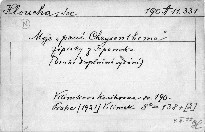 Hloucha Joe
190 II 11.331
Moje "paní Chrysanthema"
Zápisky z Japonska
(Druhé doplněné vydání)
Vilímkova knihovna sv. 190.
Praha [1931] Vilímek 8° 138+[2]